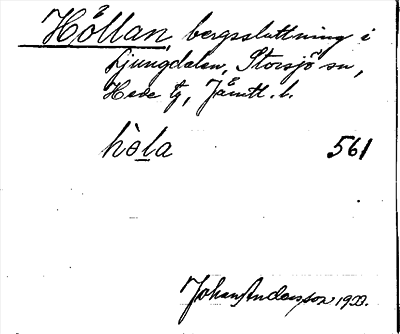 Hållan, bergssluttning i
Ljungdalen, Storsjö sn,
Hede tg, Jämtl. l.
hò̲la 561
Johan Andersson 1933.